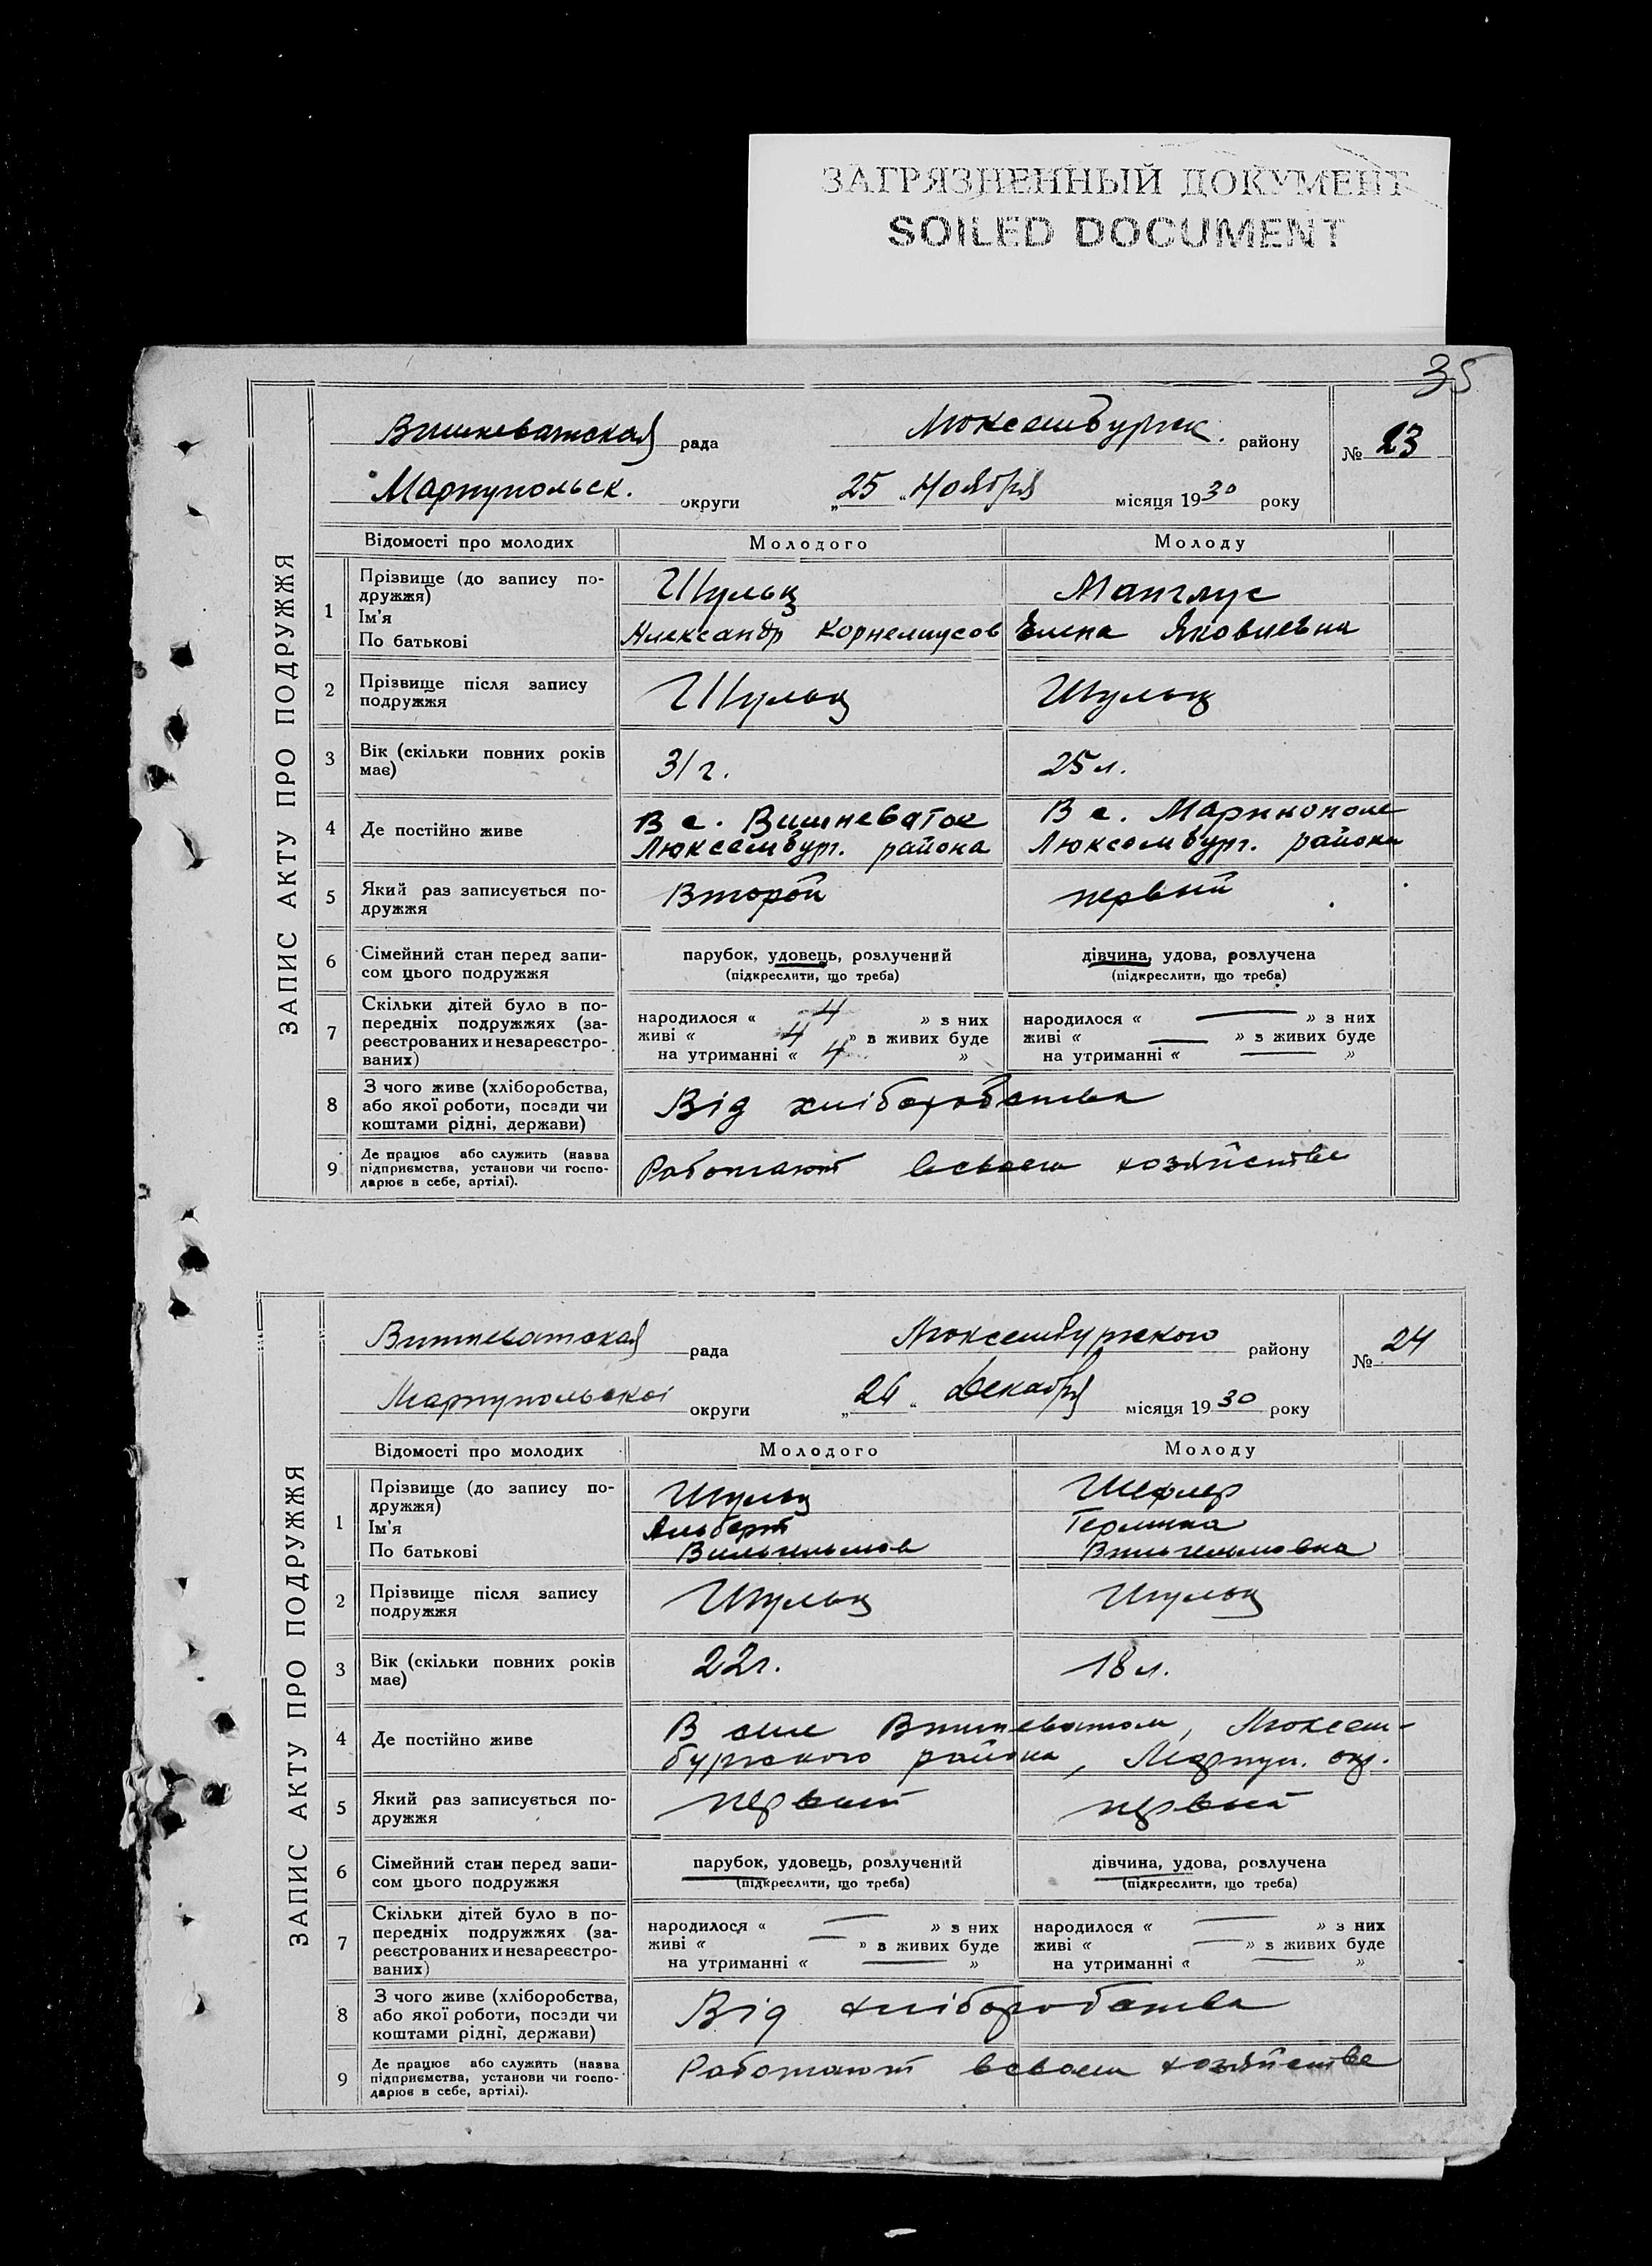 ЗАГРЯЗНЕННЫЙ ДОКУМЕНТ
SOILED DOCUMENT
35
ЗАПИС АКТУ ПРО ПОДРУЖЖЯ
Вишневатская рада Люксембургск. району № 23
Мариупольск. округи „25“ Ноября місяця 1930 року
Відомості про молодих Молодого Молоду
1 Прізвище (до запису по-
дружжя) Шульц Манглус
Ім'я
По батькові Александр Корнелиусов Елена Яковлевна
2 Прізвище після запису
подружжя Шульц Шульц
3 Вік (скільки повних років
має) 31 г. 25 л.
4 Де постійно живе В с. Вишневатое В с. Маринополе
Люксембург. района Люксембург. района
5 Який раз записується по-
дружжя Второй первый
6 Сімейний стан перед запи-
сом цього подружжя парубок, удовець, розлучений дівчина, удова, розлучена
(підкреслити, що треба) (підкреслити, що треба)
7 Скільки дітей було в по-
передніх подружжях (за-
реєстрованих и незареєстро-
ваних)
народилося « 4 » з них народилося « — » з них
живі « 4 » з живих буде живі « — » з живих буде
на утриманні « 4 » на утриманні « — »
8 З чого живе (хліборобства,
або якої роботи, посади чи
коштами рідні, держави) Від хліборобства
9 Де працює або служить (назва
підприємства, установи чи госпо-
дарює в себе, артілі). Работают в своем хозяйстве
ЗАПИС АКТУ ПРО ПОДРУЖЖЯ
Вишневатская рада Люксембургского району № 24
Мариупольской округи „26“ Декабря місяця 1930 року
Відомості про молодих Молодого Молоду
1 Прізвище (до запису по-
дружжя) Шульц Шефлер
Ім'я Альберт Гермина
По батькові Вильгельмов Вильгельмовна
2 Прізвище після запису
подружжя Шульц Шульц
3 Вік (скільки повних років
має) 22 г. 18 л.
4 Де постійно живе В селе Вишневатом, Люксем-
бургского района, Мариуп. окр.
5 Який раз записується по-
дружжя первый первый
6 Сімейний стан перед запи-
сом цього подружжя парубок, удовець, розлучений дівчина, удова, розлучена
(підкреслити, що треба) (підкреслити, що треба)
7 Скільки дітей було в по-
передніх подружжях (за-
реєстрованих и незареєстро-
ваних)
народилося « — » з них народилося « — » з них
живі « — » з живих буде живі « — » з живих буде
на утриманні « — » на утриманні « — »
8 З чого живе (хліборобства,
або якої роботи, посади чи
коштами рідні, держави) Від хліборобства
9 Де працює або служить (назва
підприємства, установи чи госпо-
дарює в себе, артілі). Работают в своем хозяйстве